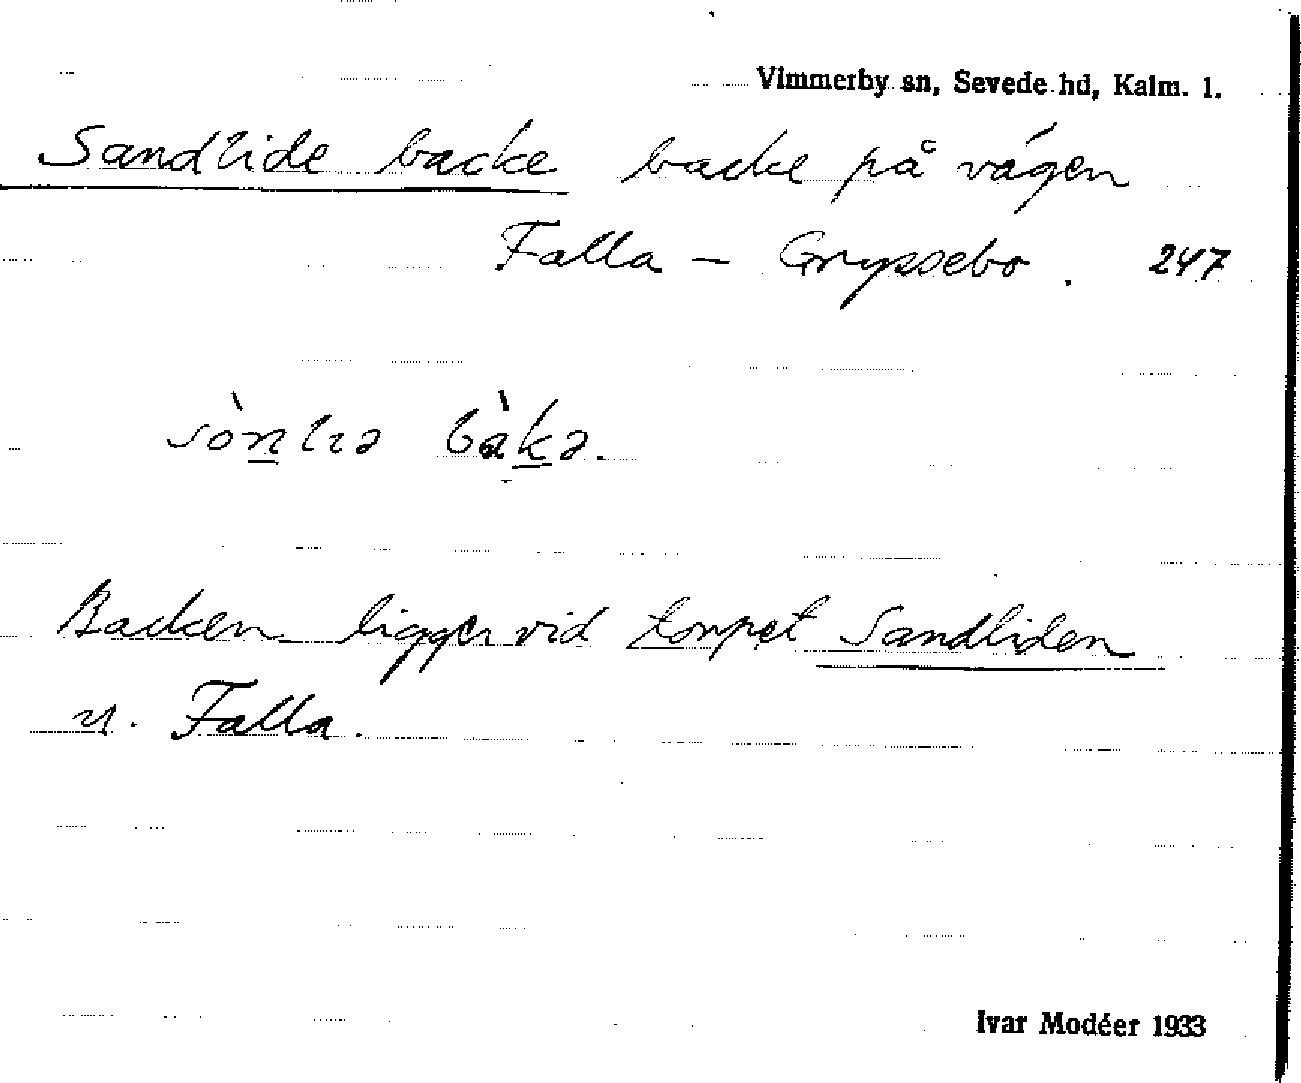 Vimmerby sn, Sevede hd, Kalm. l.
Sandlide backe backe på vägen
Falla – Gryssebo. 247
sònlıə bàkə.
Backen ligger vid torpet Sandliden
u. Falla.
Ivar Modéer 1933